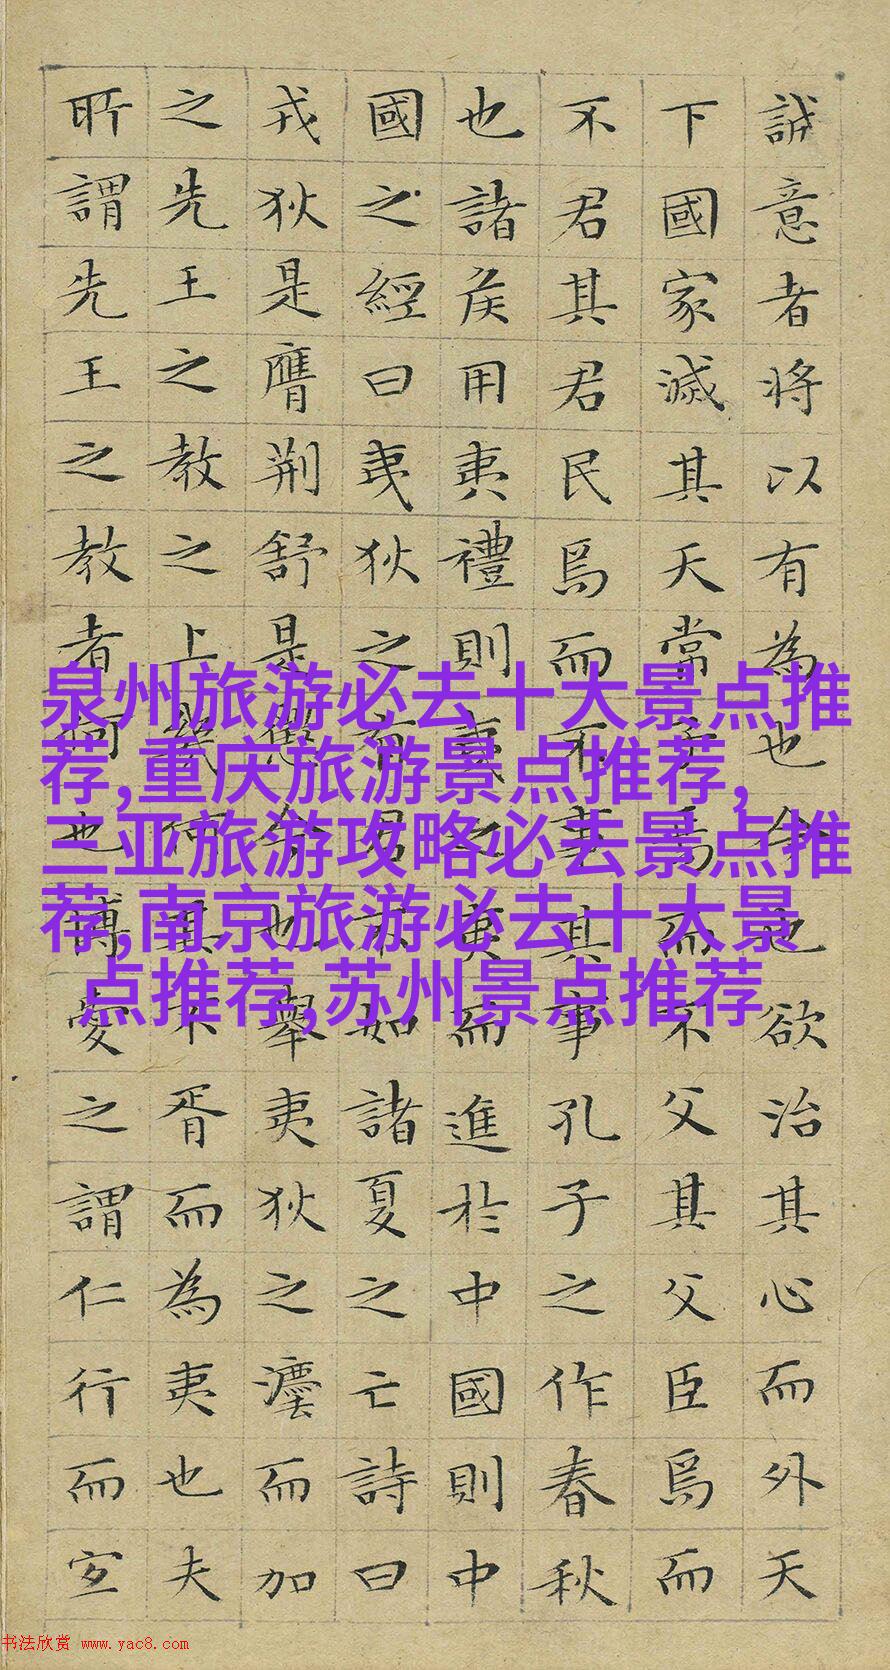 誠意者將以有為也今也欲治其心而外天
下國家滅其天常子焉而不父其父臣焉而
不君其君民焉而不事其事孔子之作春秋
也諸侯用夷禮則夷之夷而進於中國則中
國之經曰夷狄之有君不如諸夏之亡詩曰
戎狄是膺荊舒是懲今也舉夷狄之灋而加
之先王之教之上幾何其不胥而為夷也夫
所謂先王之教者何也博愛之謂仁行而宜
泉州旅游必去十大景点推
荐,重庆旅游景点推荐,
三亚旅游攻略必去景点推
荐,南京旅游必去十大景
点推荐,苏州景点推荐
书法欣赏 www.yac8.com